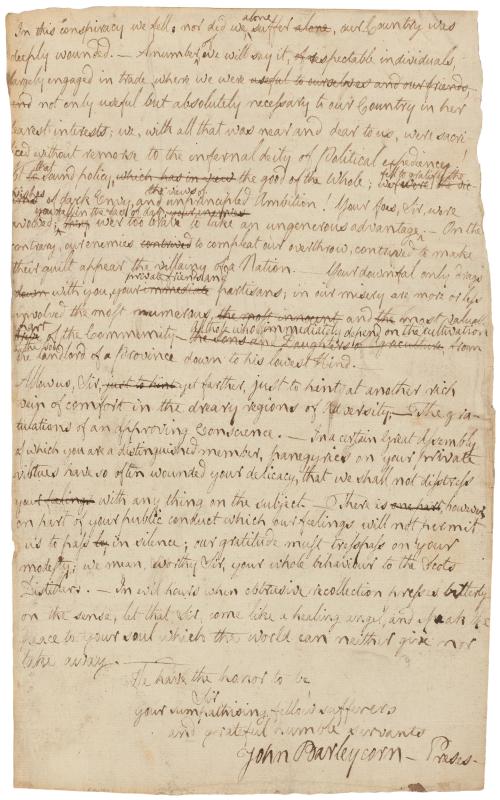 In this conspiracy we fell; nor did we alone suffer alone, our Country was
deeply wounded. — A number, we will say it, of respectable individuals,
largely engaged in trade, where we were useful to ourselves and our friends,
and not only useful but absolutely necessary to our Country in her
dearest interests; we, with all that was near and dear to us, were sacri
ficed without remorse to the infernal deity of Political expediency!
Not that sound policy, which has in view the good of the whole; but fell to gratify the
wishes of dark Envy, and the views of unprincipled Ambition! Your foes, Sir, were
avowed; were too brave to take an ungenerous advantage; you fell in the face of day — On the
contrary, our enemies continued to compleat our overthrow, contrived to make
their guilt appear the villainy of a Nation. — Your downfal only drags
down with you, your immediate private friends and partisans; in our misery are more or less
involved the most numerous, the most innocent and the most valuable
part of the Community — all those who immediately depend on the cultivation
of the soil the sons and Daughters of Agriculture, from
the landlord of a Province down to his lowest hind. —
Allow us, Sir, just to hint yet farther, just to hint at another rich
vein of comfort in the dreary regions of Adversity; — The gra-
tulations of an approving Conscience. — In a certain Great Assembly
of which you are a distinguished member, panegyrics on your private
virtues have so often wounded your delicacy, that we shall not distress
you with any thing on the subject. — There is one part, however
on part of your public conduct which our feelings will not permit
us to pass by in silence; our gratitude must trespass on your
modesty; we mean, worthy Sir, your whole behaviour to the Scots
Distillers. — In evil hours when obtrusive recollection presses bitterly
on the sense, let that Sir, come like a healing angel, and speak the
peace to your soul which the world can neither give nor
take away. —
We have the honor to be
Sir
your sympathising fellow sufferers
and grateful humble servants
John Barleycorn — Præses —